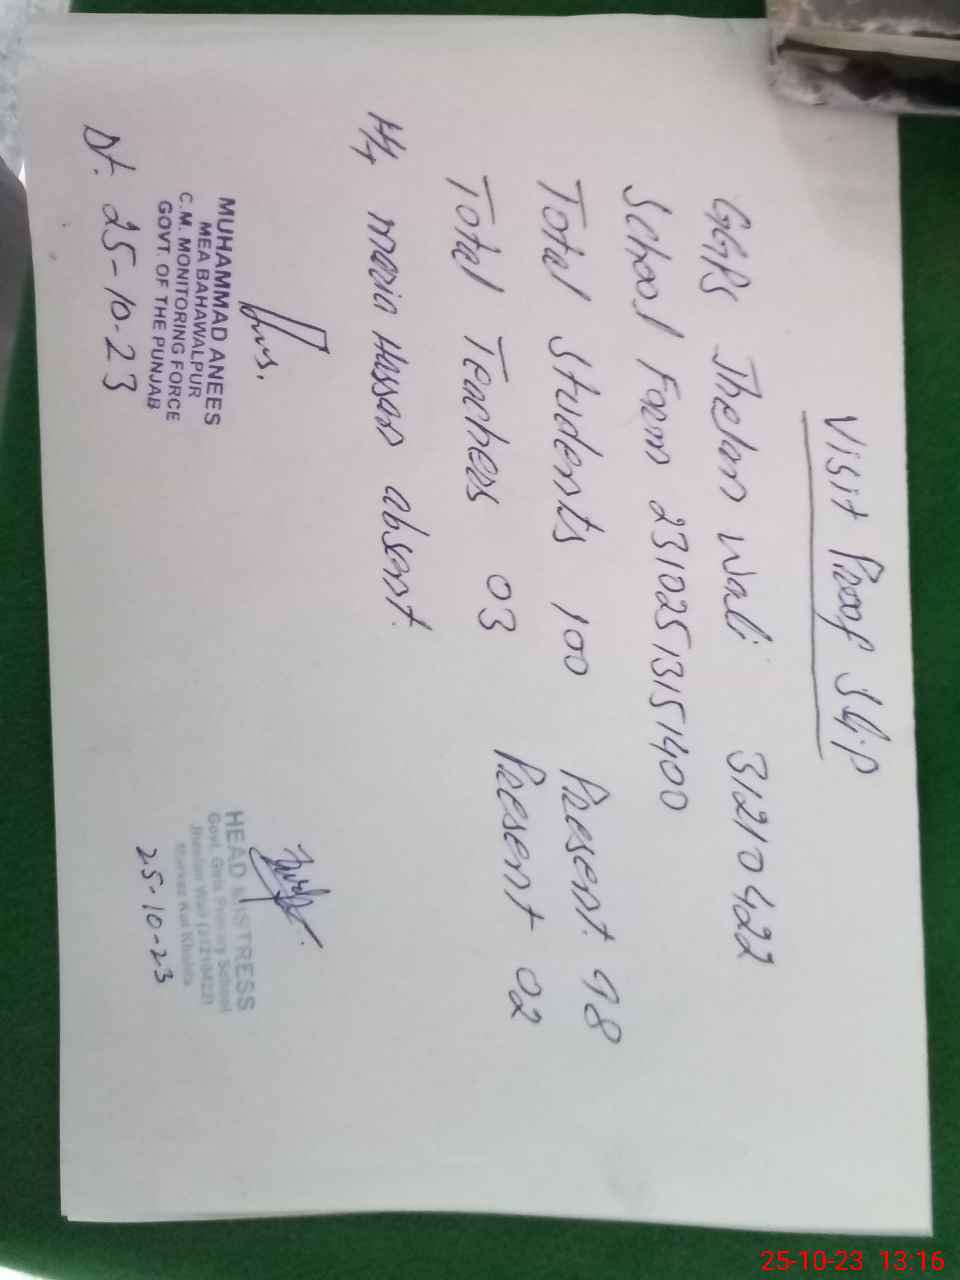 Visit Proof Slip
GGPS Jhelan Wali 31210422
School Form 23102513151400
Total Students 100 Present 98
Total Teachers 03 Present 02
Maria Hassan absent.
MUHAMMAD ANEES
MEA BAHAWALPUR
C.M. MONITORING FORCE
GOVT. OF THE PUNJAB
Dt. 25-10-23
HEAD MISTRESS
Govt. Girls Primary School
Jheelan Wali (31210422)
25-10-23
25-10-23 13:16